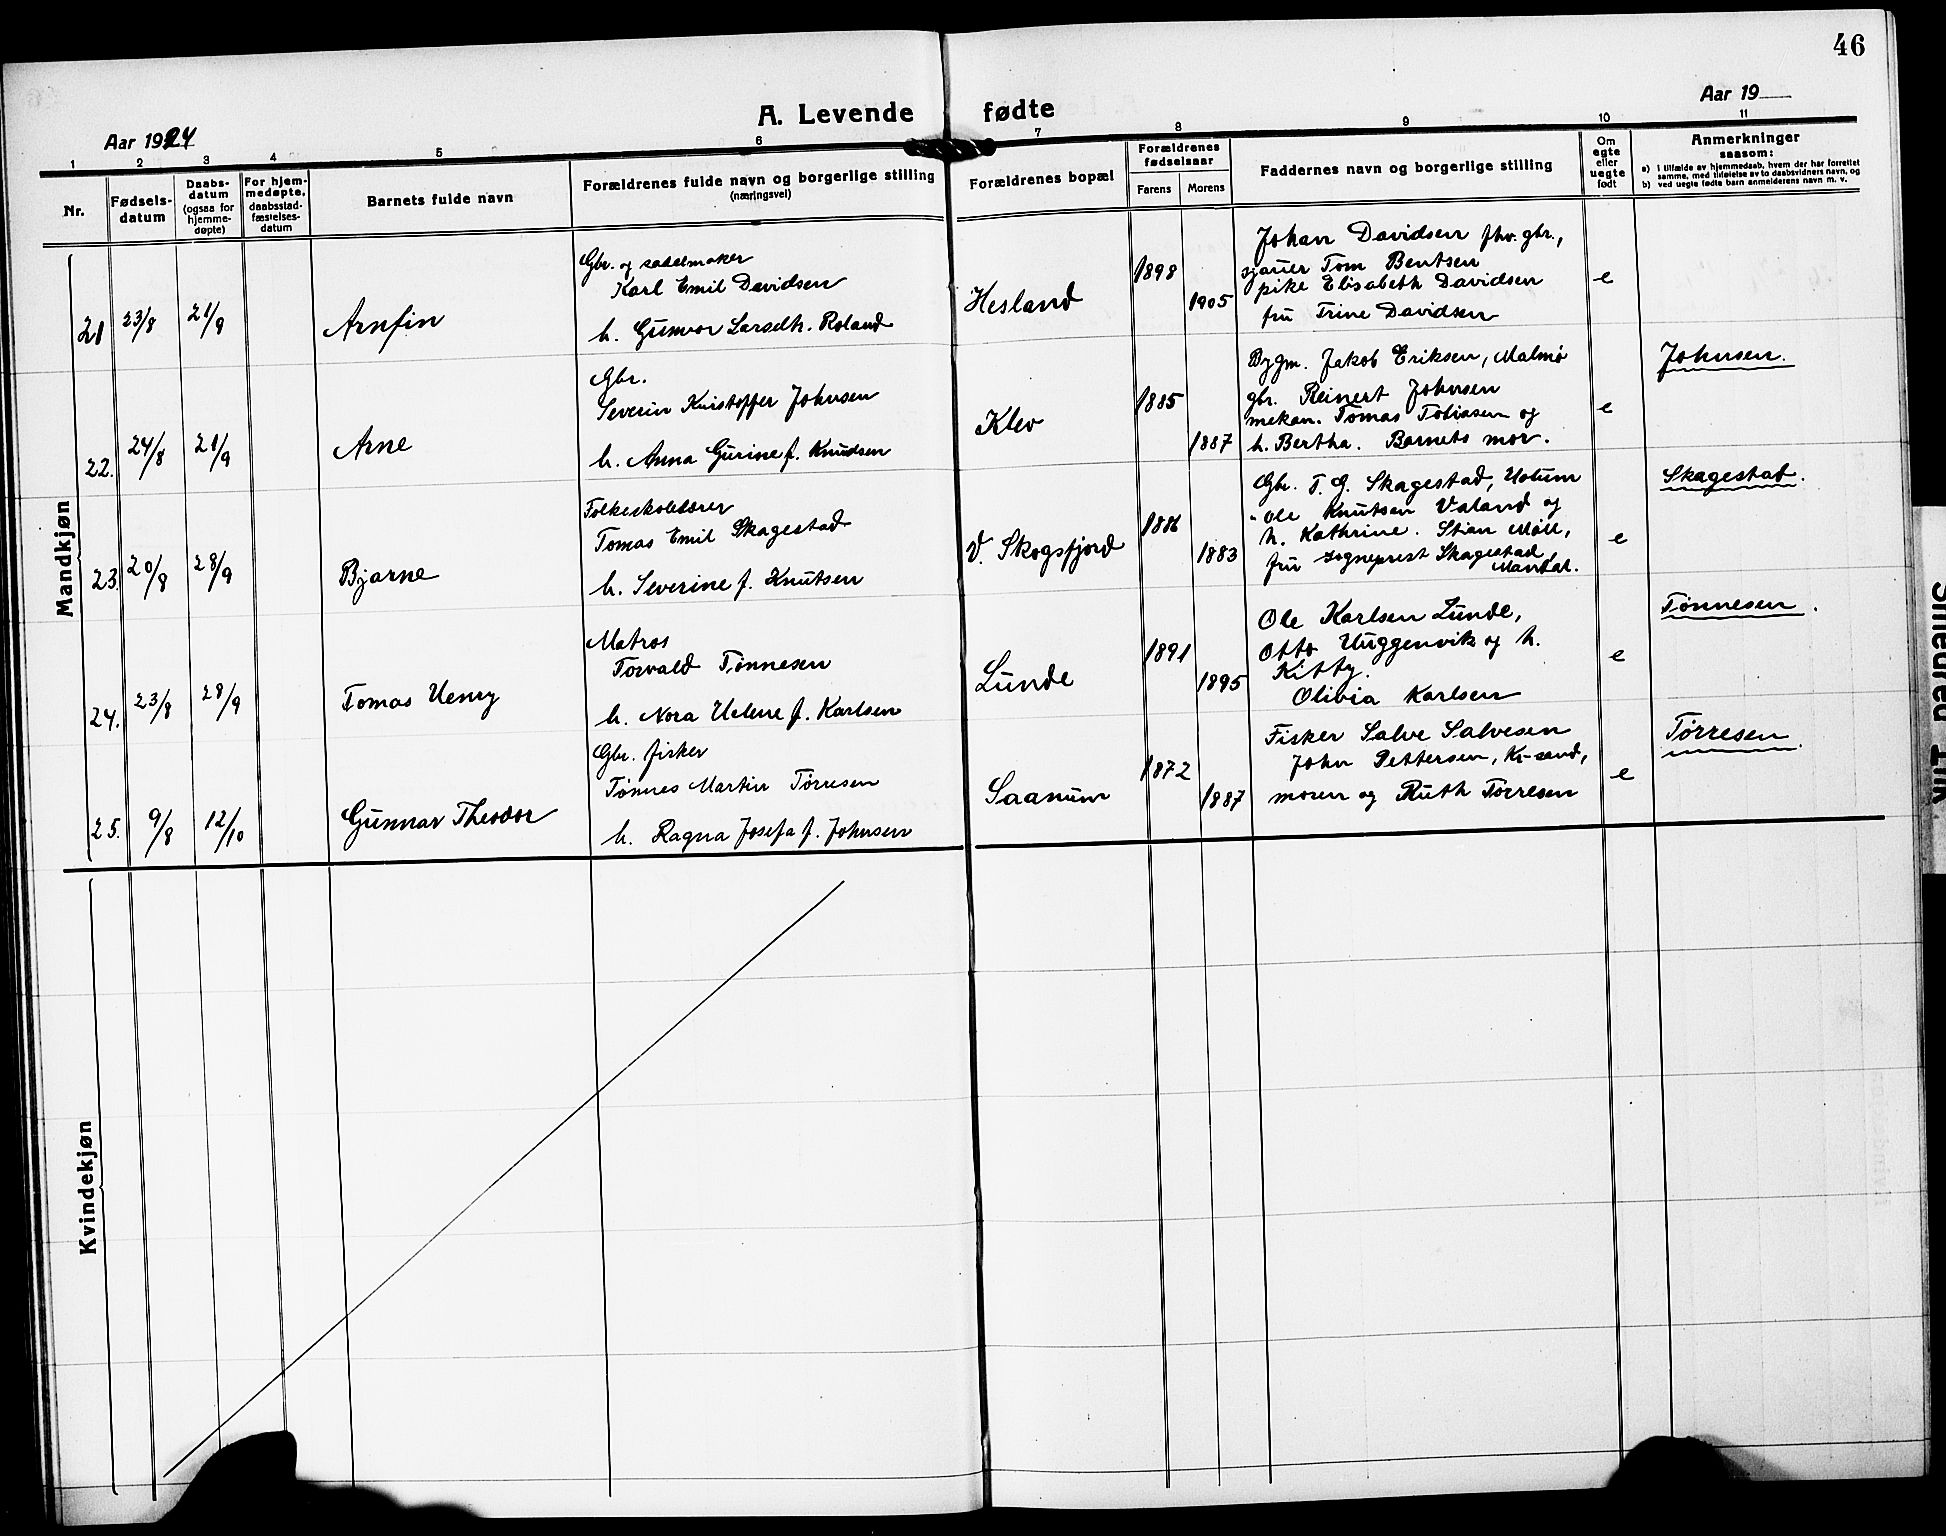 46
A. Levende fødte
Aar 1924
Aar 19
1 2 3 4 5 6 7 8 9 10 11
Nr.
Fødsels-
datum
Daabs-
datum
(ogsaa for
hjemme-
døpte)
For hjem-
medøpte.
daabsstad-
fæstelses-
datum
Barnets fulde navn
Forældrenes fulde navn og borgerlige stilling
(næringsvei)
Forældrenes bopæl
Forældrenes
fødselsaar
Farens Morens
Faddernes navn og borgerlige stilling
Om
egte
eller
uegte
født
Anmerkninger
saasom:
a) i tilfælde av hjemmedaab, hvem der har forrettet
samme, med tilføielse av to daabsvidners navn, og
b) ved uegte fødte barn anmelderens navn m. v.
Mandkjøn
21 23/8 21/9 Arnfin
Gbr. og sadelmaker
Karl Emil Davidsen
h. Gunvor Larsdtr. Roland
Hesland
1898
1905
Johan Davidsen fhv. gbr.,
sjauer Tom Bentsen
pike Elisabeth Davidsen
fru Trine Davidsen
e
22. 24/8 21/9 Arne
Gbr.
Severin Kristoffer Johnsen
h. Anna Gurine f. Knudsen
Klev
1885
1887
Bygm. Jakob Eriksen, Malmø
gbr. Reinert Johnsen
mekan. Tomas Tobiasen og
h. Bertha. Barnets mor.
e
Johnsen.
23. 20/8 28/9 Bjarne
Folkeskolelærer
Tomas Emil Skagestad
h. Severine f. Knutsen
V. Skogsfjord
1886
1883
Gbr. T. G. Skagestad, Holum
" Ole Knutsen Valand og
h. Kathrine. Stian Møll,
fru sogneprest Skagestad
Mandal.
e
Skagestad.
24. 23/8 28/9 Tomas Henry
Matros
Torvald Tønnesen
h. Nora Helene f. Karlsen
Lunde
1891
1895
Ole Karlsen Lunde,
Otto Uuggenvik og h.
Kitty.
Olivia Karlsen
e
Tønnesen.
25. 9/8 12/10 Gunnar Theodor
Gbr. fisker
Tønnes Martin Tørresen
h. Ragna Josefa f. Johnsen
Saanum
1872
1887
Fisker Salve Salvesen
John Pettersen, Kr-sand,
moren og Ruth Tørresen
e
Tørresen.
Kvindekjøn